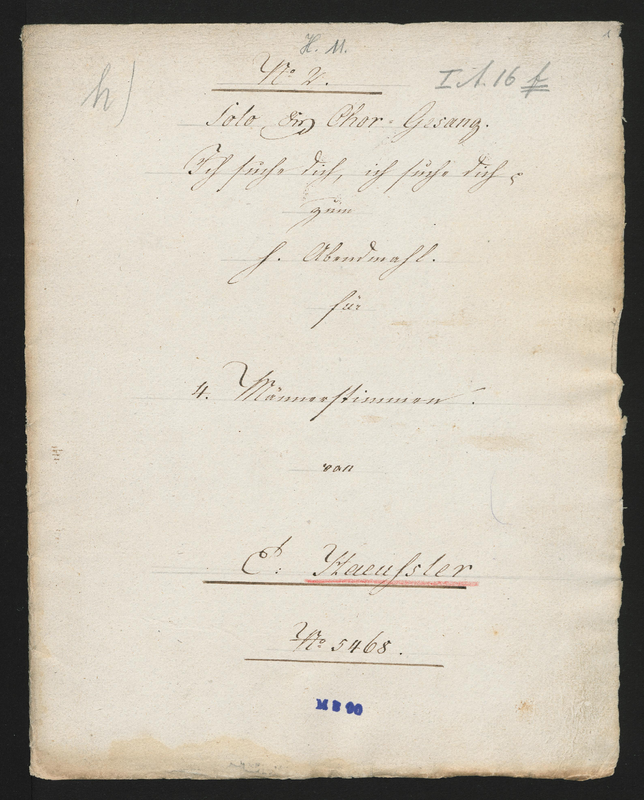 H. M.
1
No 2.
h)
I A. 16 f
Solo, Chor-Gesang.
Ich suche dich, ich suche dich
zum
h. Abendmahl.
für
4. Männerstimmen.
von
E. Haeussler
No 5468.
M B 90